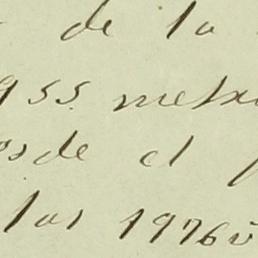 de la
955 metr
sde el
las 1976